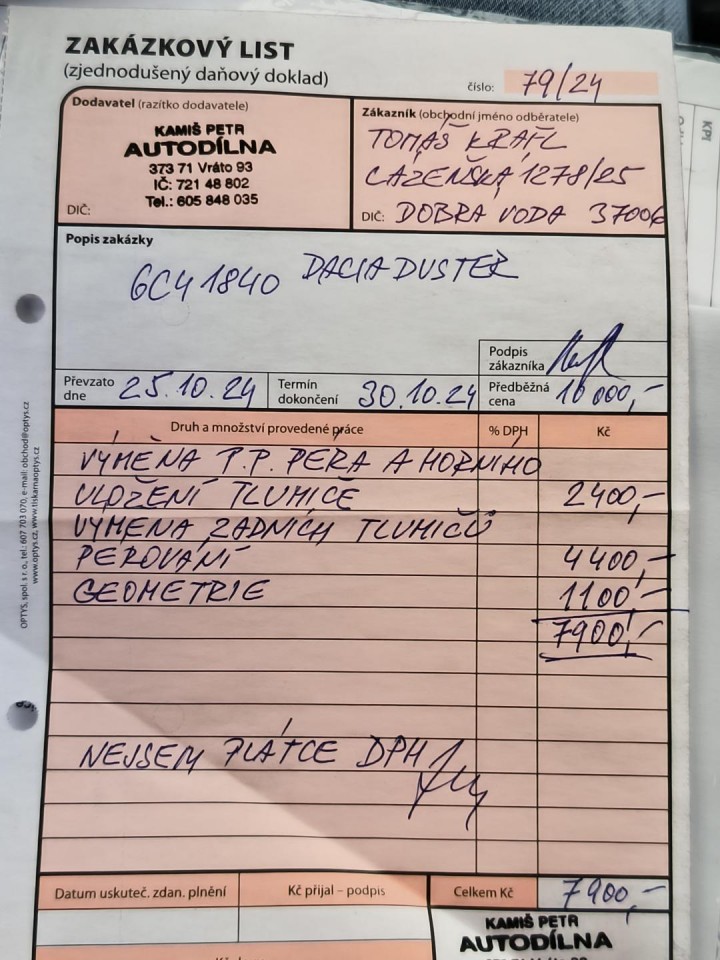 ZAKÁZKOVÝ LIST
(zjednodušený daňový doklad)
číslo: 79/24
Dodavatel (razítko dodavatele)
KAMIŠ PETR
AUTODÍLNA
373 71 Vráto 93
IČ: 721 48 802
Tel.: 605 848 035
DIČ:
Zákazník (obchodní jméno odběratele)
TOMÁŠ KRAFL
LÁZEŇSKÁ 1278/25
DIČ: DOBRA VODA 37006
Popis zakázky
6C4 1840 DACIA DUSTER
Podpis zákazníka
Převzato dne 25.10.24
Termín dokončení 30.10.24
Předběžná cena 10 000,-
Druh a množství provedené práce % DPH Kč
VÝMĚNA P.P. PÉRA A HORNIHO
ULOŽENÍ TLUMIČE 2400,-
VÝMĚNA ZADNÍCH TLUMIČŮ
PEROVÁNÍ 4400,-
GEOMETRIE 1100,-
7900,-
NEJSEM PLÁTCE DPH
Datum uskuteč. zdan. plnění Kč přijal – podpis Celkem Kč 7900,-
KAMIŠ PETR
AUTODÍLNA
OPTYS, spol. s r. o., tel.: 607 703 070, e-mail: obchod@optys.cz
www.optys.cz, www.tiskarnaoptys.cz
KPI